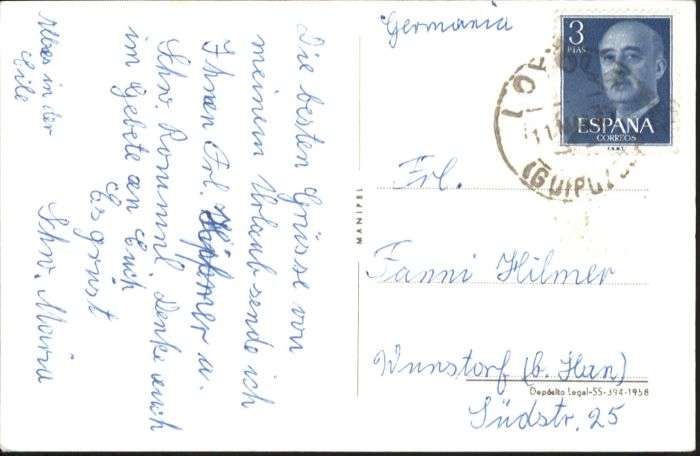 Die besten Grüsse von
meinem Urlaub sende ich
Ihnen Frl. u.
Schw. Rommul. Denke auch
im Gebete an Euch
Es grüst
Schw. Maria
Alles in der
Eile
MANIPEL
Germania
3
PTAS
ESPAÑA
CORREOS
(GUIPUZ
Frl.
Fanni Hilmer
Wunstorf (b. Han)
Depósito Legal-SS-394-1958
Südstr. 25